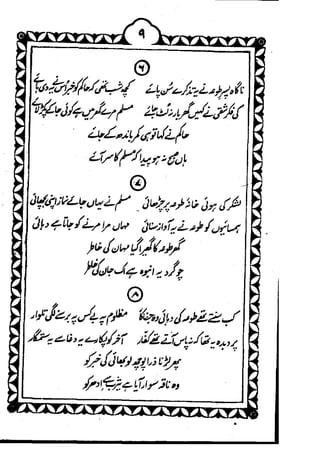 ۹
۶
ناگاہ پسر طوعہ نے یہ تذکرے سن پائے کچھ شب تھی کہ حاکم کو خبر اس نے یہ دی ہائے
کی فکر شقی نے کہیں گھر بار نہ لٹ جائے مسلم مرے گھر میں ہے کوئی جا کے پکڑ لائے
حاکم نے کہا تو ہی کمر باندھ کے جائے
ہاں صبح نہ ہو پیدا کہ مسلم کا سر آئے
۷
لشکر کی ہوئی خانۂ طوعہ پہ چڑھائی مسلم نے یہاں جائے نماز اپنی بچھائی
ہمسایوں کو طوعہ نے یہ آواز سنائی مہماں مرا مرنے کو جاتا ہے دہائی
گھر طوعہ کا گھیرا گیا مہمان کی خاطر
چو گرد یہ انبوہ ہے اک جان کی خاطر
۸
کب سنتے تھے طوعہ کی دہائی وہ جفاکار مظلوم پہ بے کس پہ برسنے لگی تلوار
پر دبدبہ یہ تھا کہ نہ پاس آتے تھے کفار آخر کو پکارے یہ دغا سے یہ ستمگار
پھر لڑنا ذرا پوچھ لو بھائی کی خبر کو
وہ ناقہ سوار آیا ہے یثرب سے ادھر کو